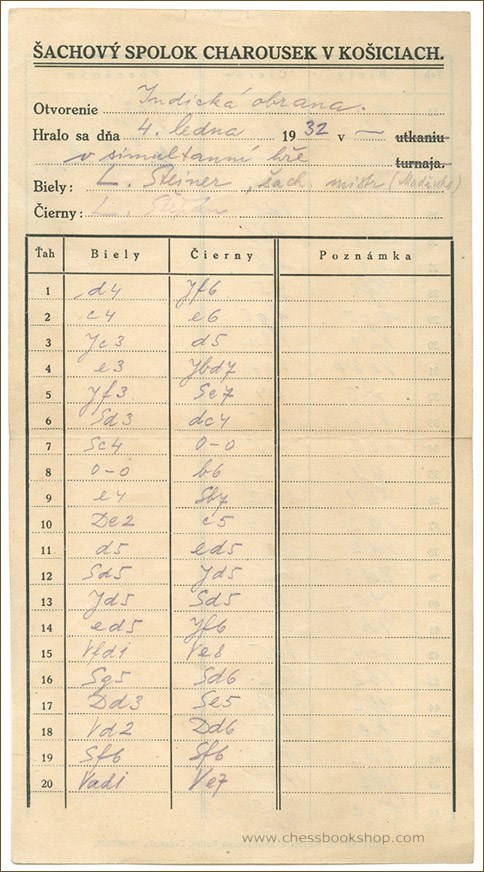 ŠACHOVÝ SPOLOK CHAROUSEK V KOŠICIACH.
Otvorenie Indická obrana.
Hralo sa dňa 4. ledna 1932 v — utkaniu
v simultanní hře turnaja.
Biely: L. Steiner, šach. mistr (Maďarsko)
Čierny: L.
Ťah Biely Čierny Poznámka
1 d4 Jf6
2 c4 e6
3 Jc3 d5
4 e3 Jbd7
5 Jf3 Se7
6 Sd3 dc4
7 Sc4 0-0
8 0-0 b6
9 e4 Sb7
10 De2 c5
11 d5 ed5
12 Sd5 Jd5
13 Jd5 Sd5
14 ed5 Jf6
15 Vfd1 Ve8
16 Sg5 Sd6
17 Dd3 Se5
18 Vd2 Dd6
19 Sf6 Sf6
20 Vad1 Ve7
www.chessbookshop.com